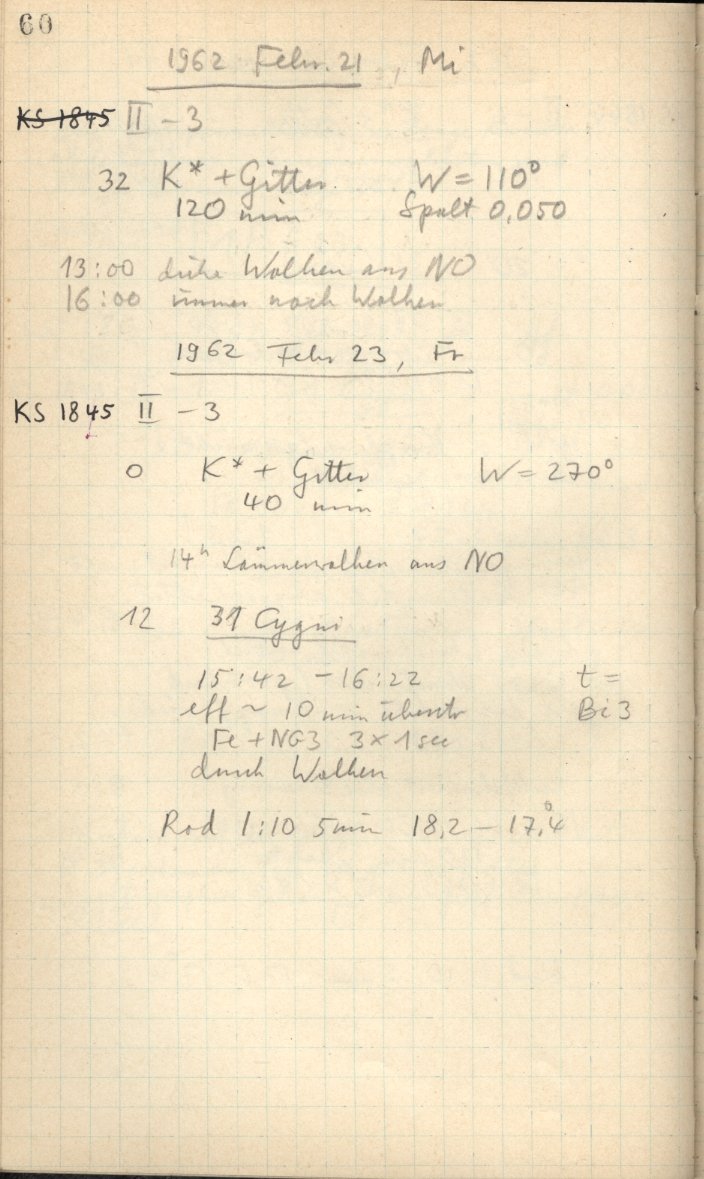 60
1962 Febr. 21, Mi
KS 1845 II - 3
32 K* + Gitter W = 110°
120 min Spalt 0,050
13:00 dicke Wolken aus NO
16:00 immer noch Wolken
1962 Febr 23, Fr
KS 1845 II - 3
0 K* + Gitter W = 270°
40 min
14h Lämmerwolken aus NO
12 31 Cygni
15:42 - 16:22 t =
eff ~ 10 min Bi 3
Fe + NG3 3 x 1 sec
durch Wolken
Rod 1:10 5 min 18,2 - 17,4°